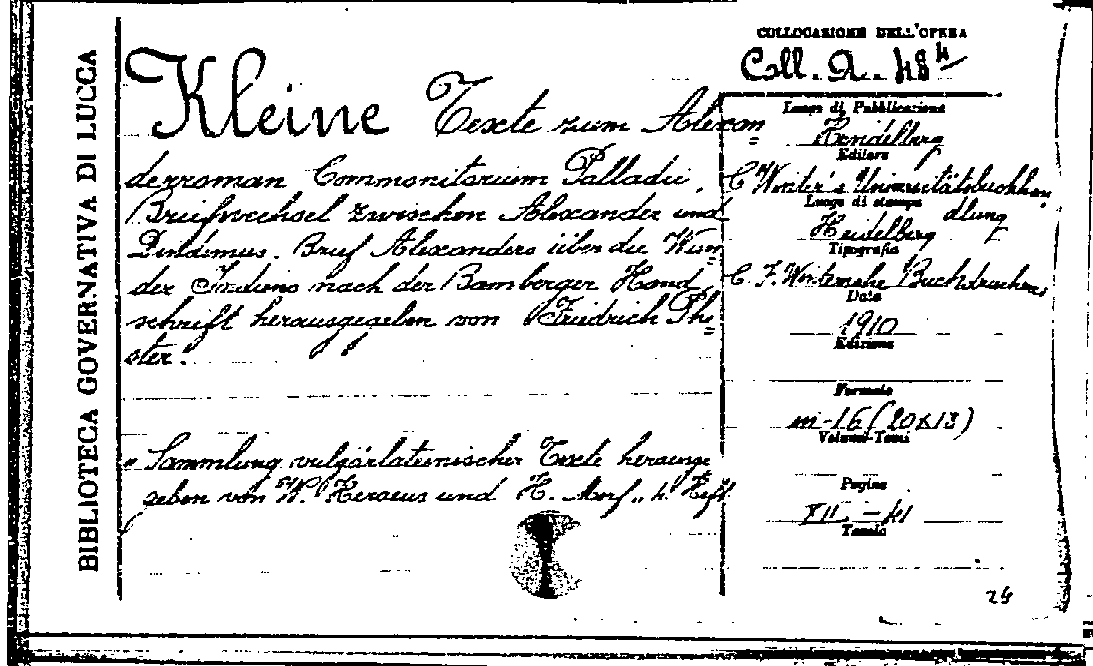 BIBLIOTECA GOVERNATIVA DI LUCCA
Kleine Texte zum Alexan=
derroman Commonitorium Palladii,
Briefwechsel zwischen Alexander und
Dindimus. Brief Alexanders über die Wun=
der Indiens nach der Bamberger Hand=
schrift herausgegeben von Friedrich Pfi=
ster.
" Sammlung vulgärlateinischer Texte herausge
geben von W. Heraeus und H. Morf „ 4. Heft
COLLOCAZIONE DELL'OPERA
Coll. A. 48 4
Luogo di Pubblicazione
Heidelberg
Editore
C Winter's Universitätsbuchhan
dlung
Luogo di stampa
Heidelberg
Tipografia
C. F. Wintersche Buchdruckerei
Data
1910
Edizione
Formato
in-16 (20x13)
Volumi-Tomi
Pagine
XII. - 41
Tavole